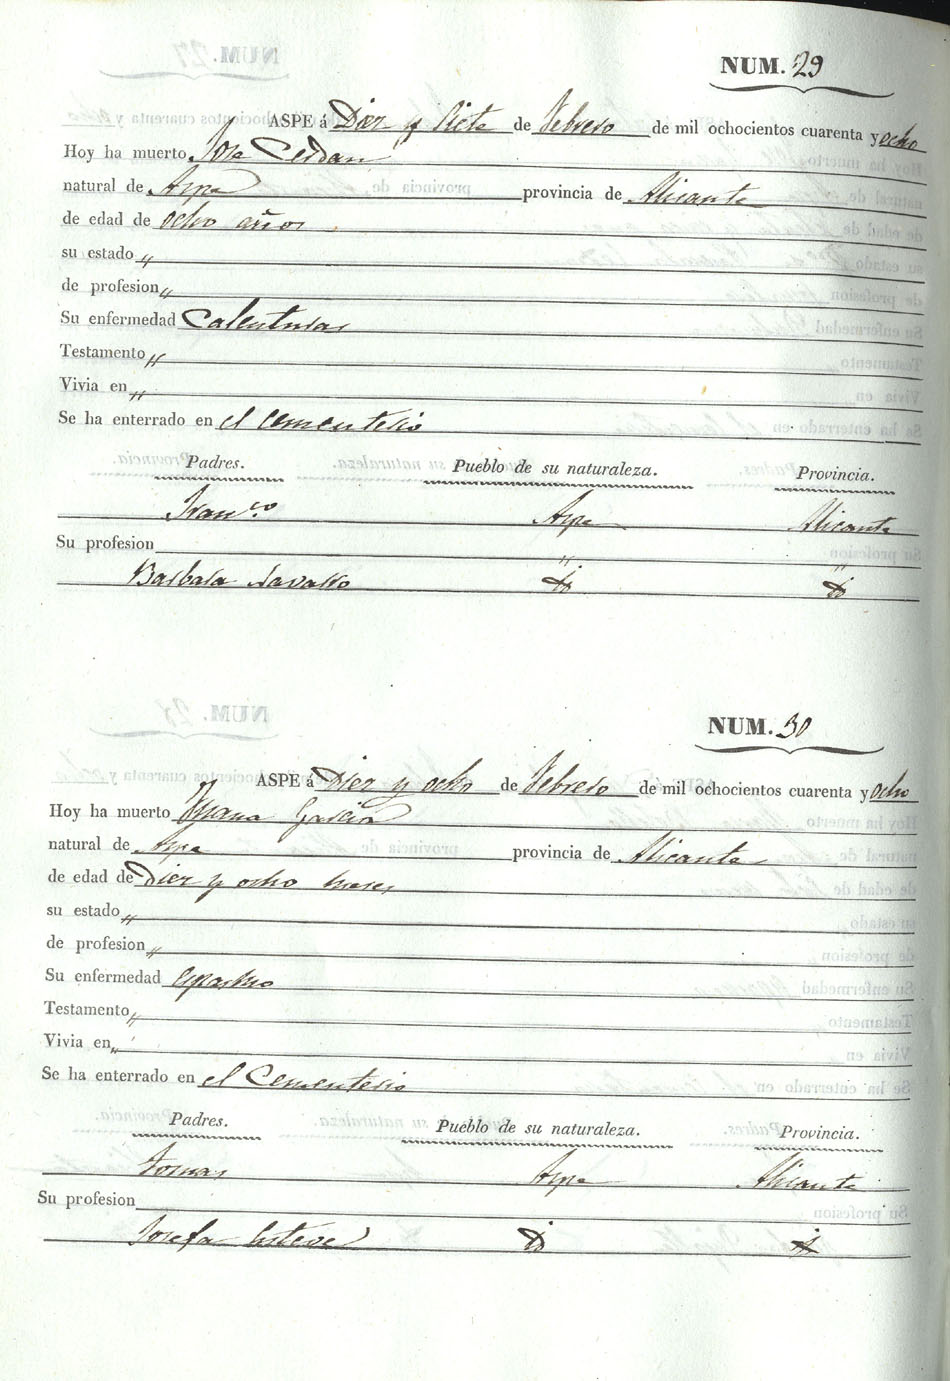 NUM. 29
ASPE á Diez y Siete de Febrero de mil ochocientos cuarenta y ocho
Hoy ha muerto Jose Cerdan
natural de Aspe provincia de Alicante
de edad de ocho años
su estado „
de profesion „
Su enfermedad Calenturas
Testamento „
Vivia en „
Se ha enterrado en el Cementerio
Padres. Pueblo de su naturaleza. Provincia.
Franco Aspe Alicante
Su profesion „ „
Barbara Navarro id id
NUM. 30
ASPE á Diez y ocho de Febrero de mil ochocientos cuarenta y ocho
Hoy ha muerto Juana Garcia
natural de Aspe provincia de Alicante
de edad de Diez y ocho meses
su estado „
de profesion „
Su enfermedad espasmo
Testamento „
Vivia en „
Se ha enterrado en el Cementerio
Padres. Pueblo de su naturaleza. Provincia.
Tomas Aspe Alicante
Su profesion
Josefa Esteve id id